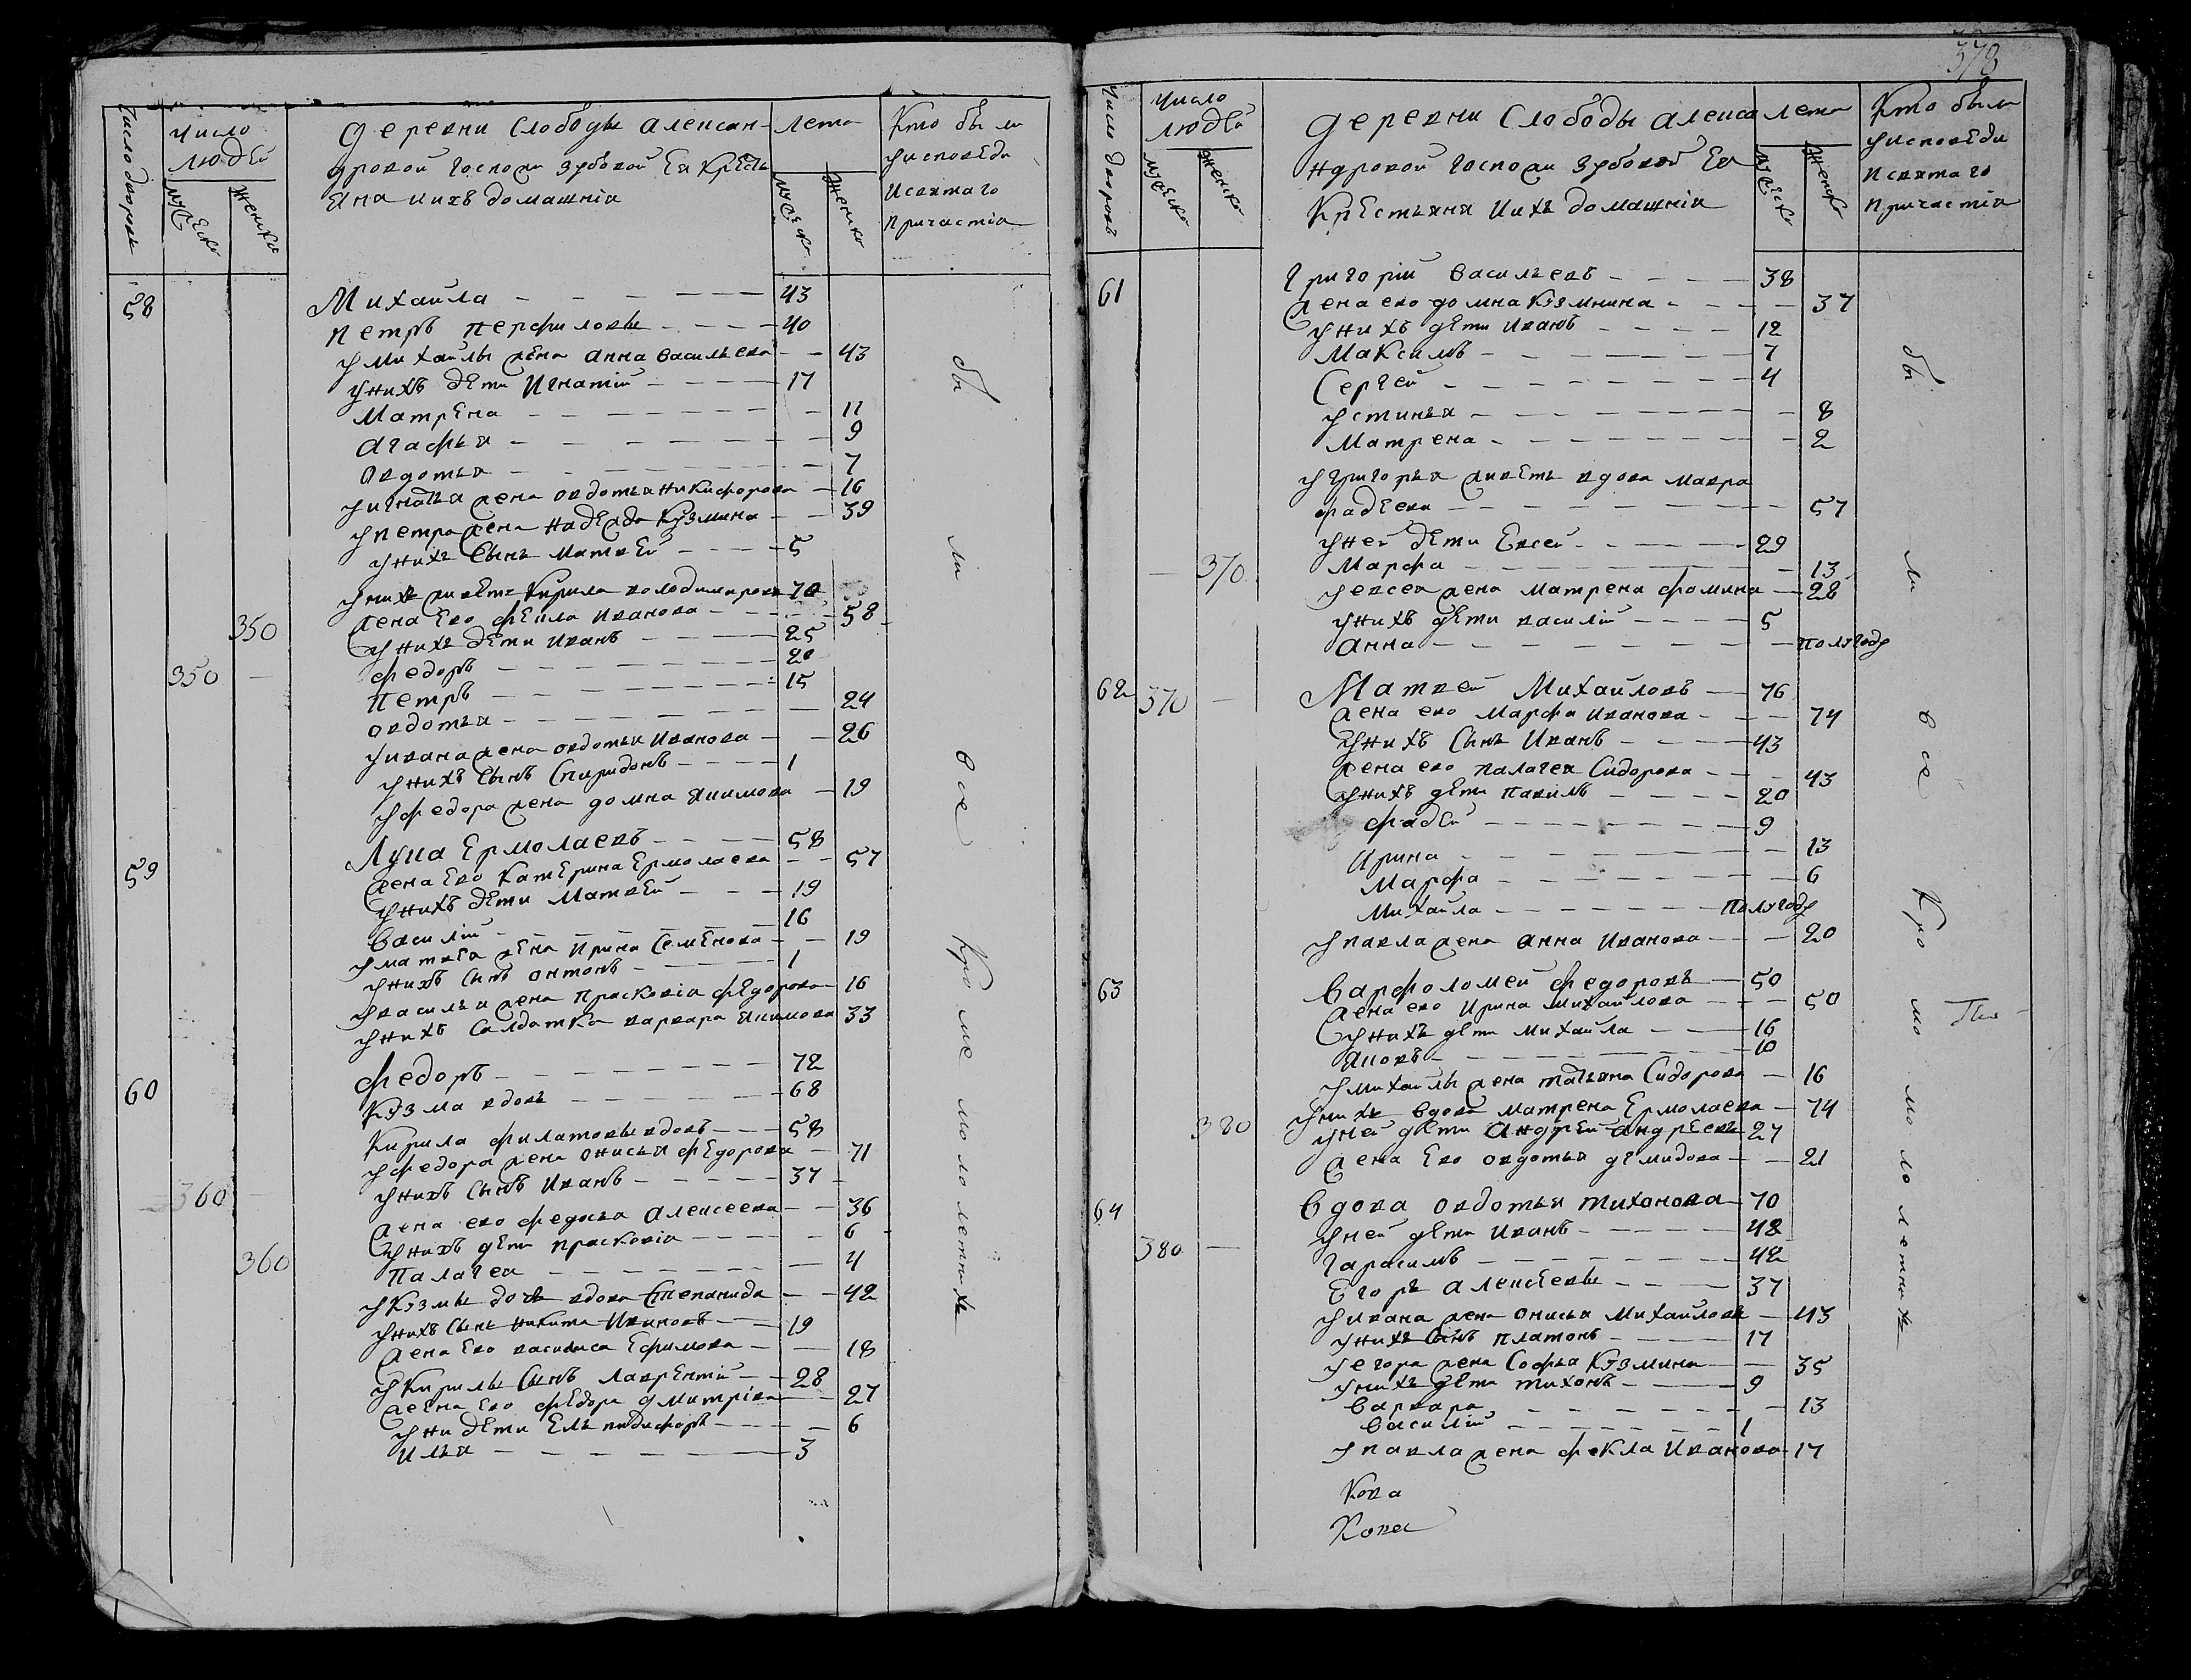 Число дворовъ
Число людей
мужеска
женска
деревни Слободы алексан-
дровой Госпожи Зубовой Ея Кресть
Яна иихъ домашнiя
лета
мужеска
женска
Кто были
уисповеди
исвятаго
причастiя
58 Михаила 43
петръ перфиловы 40
умихаилы жена анна васильева 43
унихъ дети Игнатiй 17
Матрена 11
агафья 9
овдотья 7
уигнатья жена овдотья никифорова 16
упетра жена надежда кузмина 39
унихъ сынъ матвей 5
унихъ живетъ кирила володимировъ 70
350 жена ево Иванова 58
унихъ дети Иванъ 25
350 федоръ 20
петръ 15
овдотья 24
уивана жена овдотья Иванова 26
унихъ сынъ Спиридонъ 1
уфедора жена домна якимова 19
59 Лука Ермолаевъ 58
жена Ево катерина Ермолаева 57
унихъ дети Матвей 19
василiй 16
уматвея жена Ирина Семенова 19
унихъ сынъ онтонъ 1
увасилья жена прасковiя федорова 16
унихъ салдатка варвара якимова 33
60 федоръ 72
кузма вдовъ 68
кирила филатовы вдовъ 58
уфедора жена онисья федорова 71
унихъ сынъ Иванъ 37
360 жена ево федосья алексеева 36
унихъ дети прасковiя 6
360 палагея 4
укузмы дочь вдова степанида 42
унихъ сынъ никита Ивановъ 19
жена Ево василиса Ефимова 18
укирилы сынъ лаврентiй 28
жена Ево федора дмитрiева 27
уни дети 6
илья 3
были все кроме мололетнихъ
378
Число дворовъ
Число людей
мужеска
женска
деревни Слободы алекса
ндровой Госпожи Зубовой Ея
Крестьяня иихъ домашнiя
лета
мужеска
женска
Кто были
уисповеди
исвятаго
причастiя
61 Григорiй васильевъ 38
жена ево домна кузмнина 37
унихъ дети иванъ 12
Максимъ 7
Сергей 4
устинья 8
Матрена 2
угригорья живетъ вдова мавра
фадеева 57
уней дети Евсей 29
370 Марфа 13
уевсея жена матрена фомина 28
унихъ дети василiй 5
анна полугоду
62 370 Матвей Михайловъ 76
жена ево Марфа Иванова 74
унихъ сынъ Иванъ 43
жена ево палагея Сидорова 43
унихъ дети павилъ 20
фадей 9
Ирина 13
Марфа 6
михаила полугоду
упавла жена анна Иванова 20
63 варфоломей федоровъ 50
жена ево Ирина михайлова 50
унихъ дети михаила 16
яковъ 10
умихаилы жена татьяна Сидорова 16
380 унихъ вдова матрена Ермолаева 74
уней дети андрей андреевъ 27
жена Ево овдотья демидова 21
64 вдова овдотья тихонова 70
уней дети Иванъ 48
380 гарасимъ 42
Егоръ алексеевы 37
уивана жена онисья михайлова 43
унихъ сынъ платонъ 17
уегора жена Софья кузмина 35
унихъ дети тихонъ 9
варвара 13
василiй 1
упавла жена фекла Иванова 17
были все кромо мололетнихъ